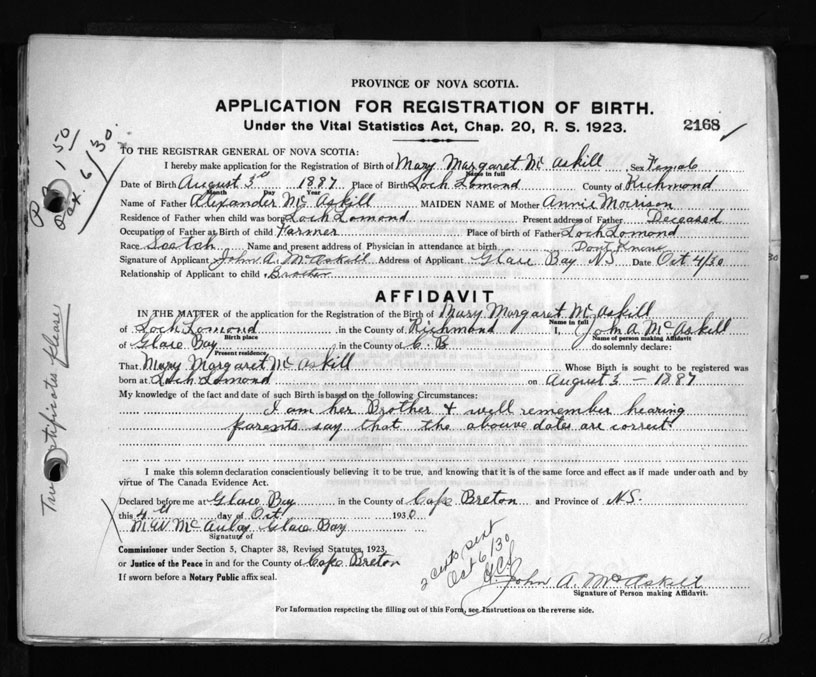 PROVINCE OF NOVA SCOTIA.
APPLICATION FOR REGISTRATION OF BIRTH.
Under the Vital Statistics Act, Chap. 20, R. S. 1923.
2168
Pd 1.50
Oct. 6/30.
TO THE REGISTRAR GENERAL OF NOVA SCOTIA:
I hereby make application for the Registration of Birth of Mary Margaret Mc Askill Sex Female
Name in full
Date of Birth August 3rd 1887 Place of Birth Loch Lomond County of Richmond
Month Day Year
Name of Father Alexander Mc Askill MAIDEN NAME of Mother Annie Morrison
Residence of Father when child was born Loch Lomond Present address of Father Deceased
Occupation of Father at Birth of child Farmer Place of birth of Father Loch Lomond
Race Scotch Name and present address of Physician in attendance at birth Dont Know
Signature of Applicant John A. McAskill Address of Applicant Glace Bay NS Date Oct 4/30
Relationship of Applicant to child Brother
AFFIDAVIT
IN THE MATTER of the application for the Registration of the Birth of Mary Margaret Mc Askill
Name in full
of Loch Lomond in the County of Richmond I, John A. McAskill
Birth place Name of person making Affidavit
of Glace Bay in the County of C. B do solemnly declare:
Present residence.
That Mary Margaret Mc Askill Whose Birth is sought to be registered was
born at Loch Lomond on August 3 - 1887
My knowledge of the fact and date of such Birth is based on the following Circumstances:
I am her Brother & well remember hearing
parents say that the abouve dates are correct
I make this solemn declaration conscientiously believing it to be true, and knowing that it is of the same force and effect as if made under oath and by
virtue of The Canada Evidence Act.
Declared before me at Glace Bay in the County of Cape Breton and Province of NS.
this 4th day of Oct 1930
M W McAulay Glace Bay
Signature of
Commissioner under Section 5, Chapter 38, Revised Statutes, 1923,
or Justice of the Peace in and for the County of Cape Breton
If sworn before a Notary Public affix seal.
2 certs sent
Oct 6/30
John A. McAskill
Signature of Person making Affidavit.
For Information respecting the filling out of this Form, see Instructions on the reverse side.
Two certificates please